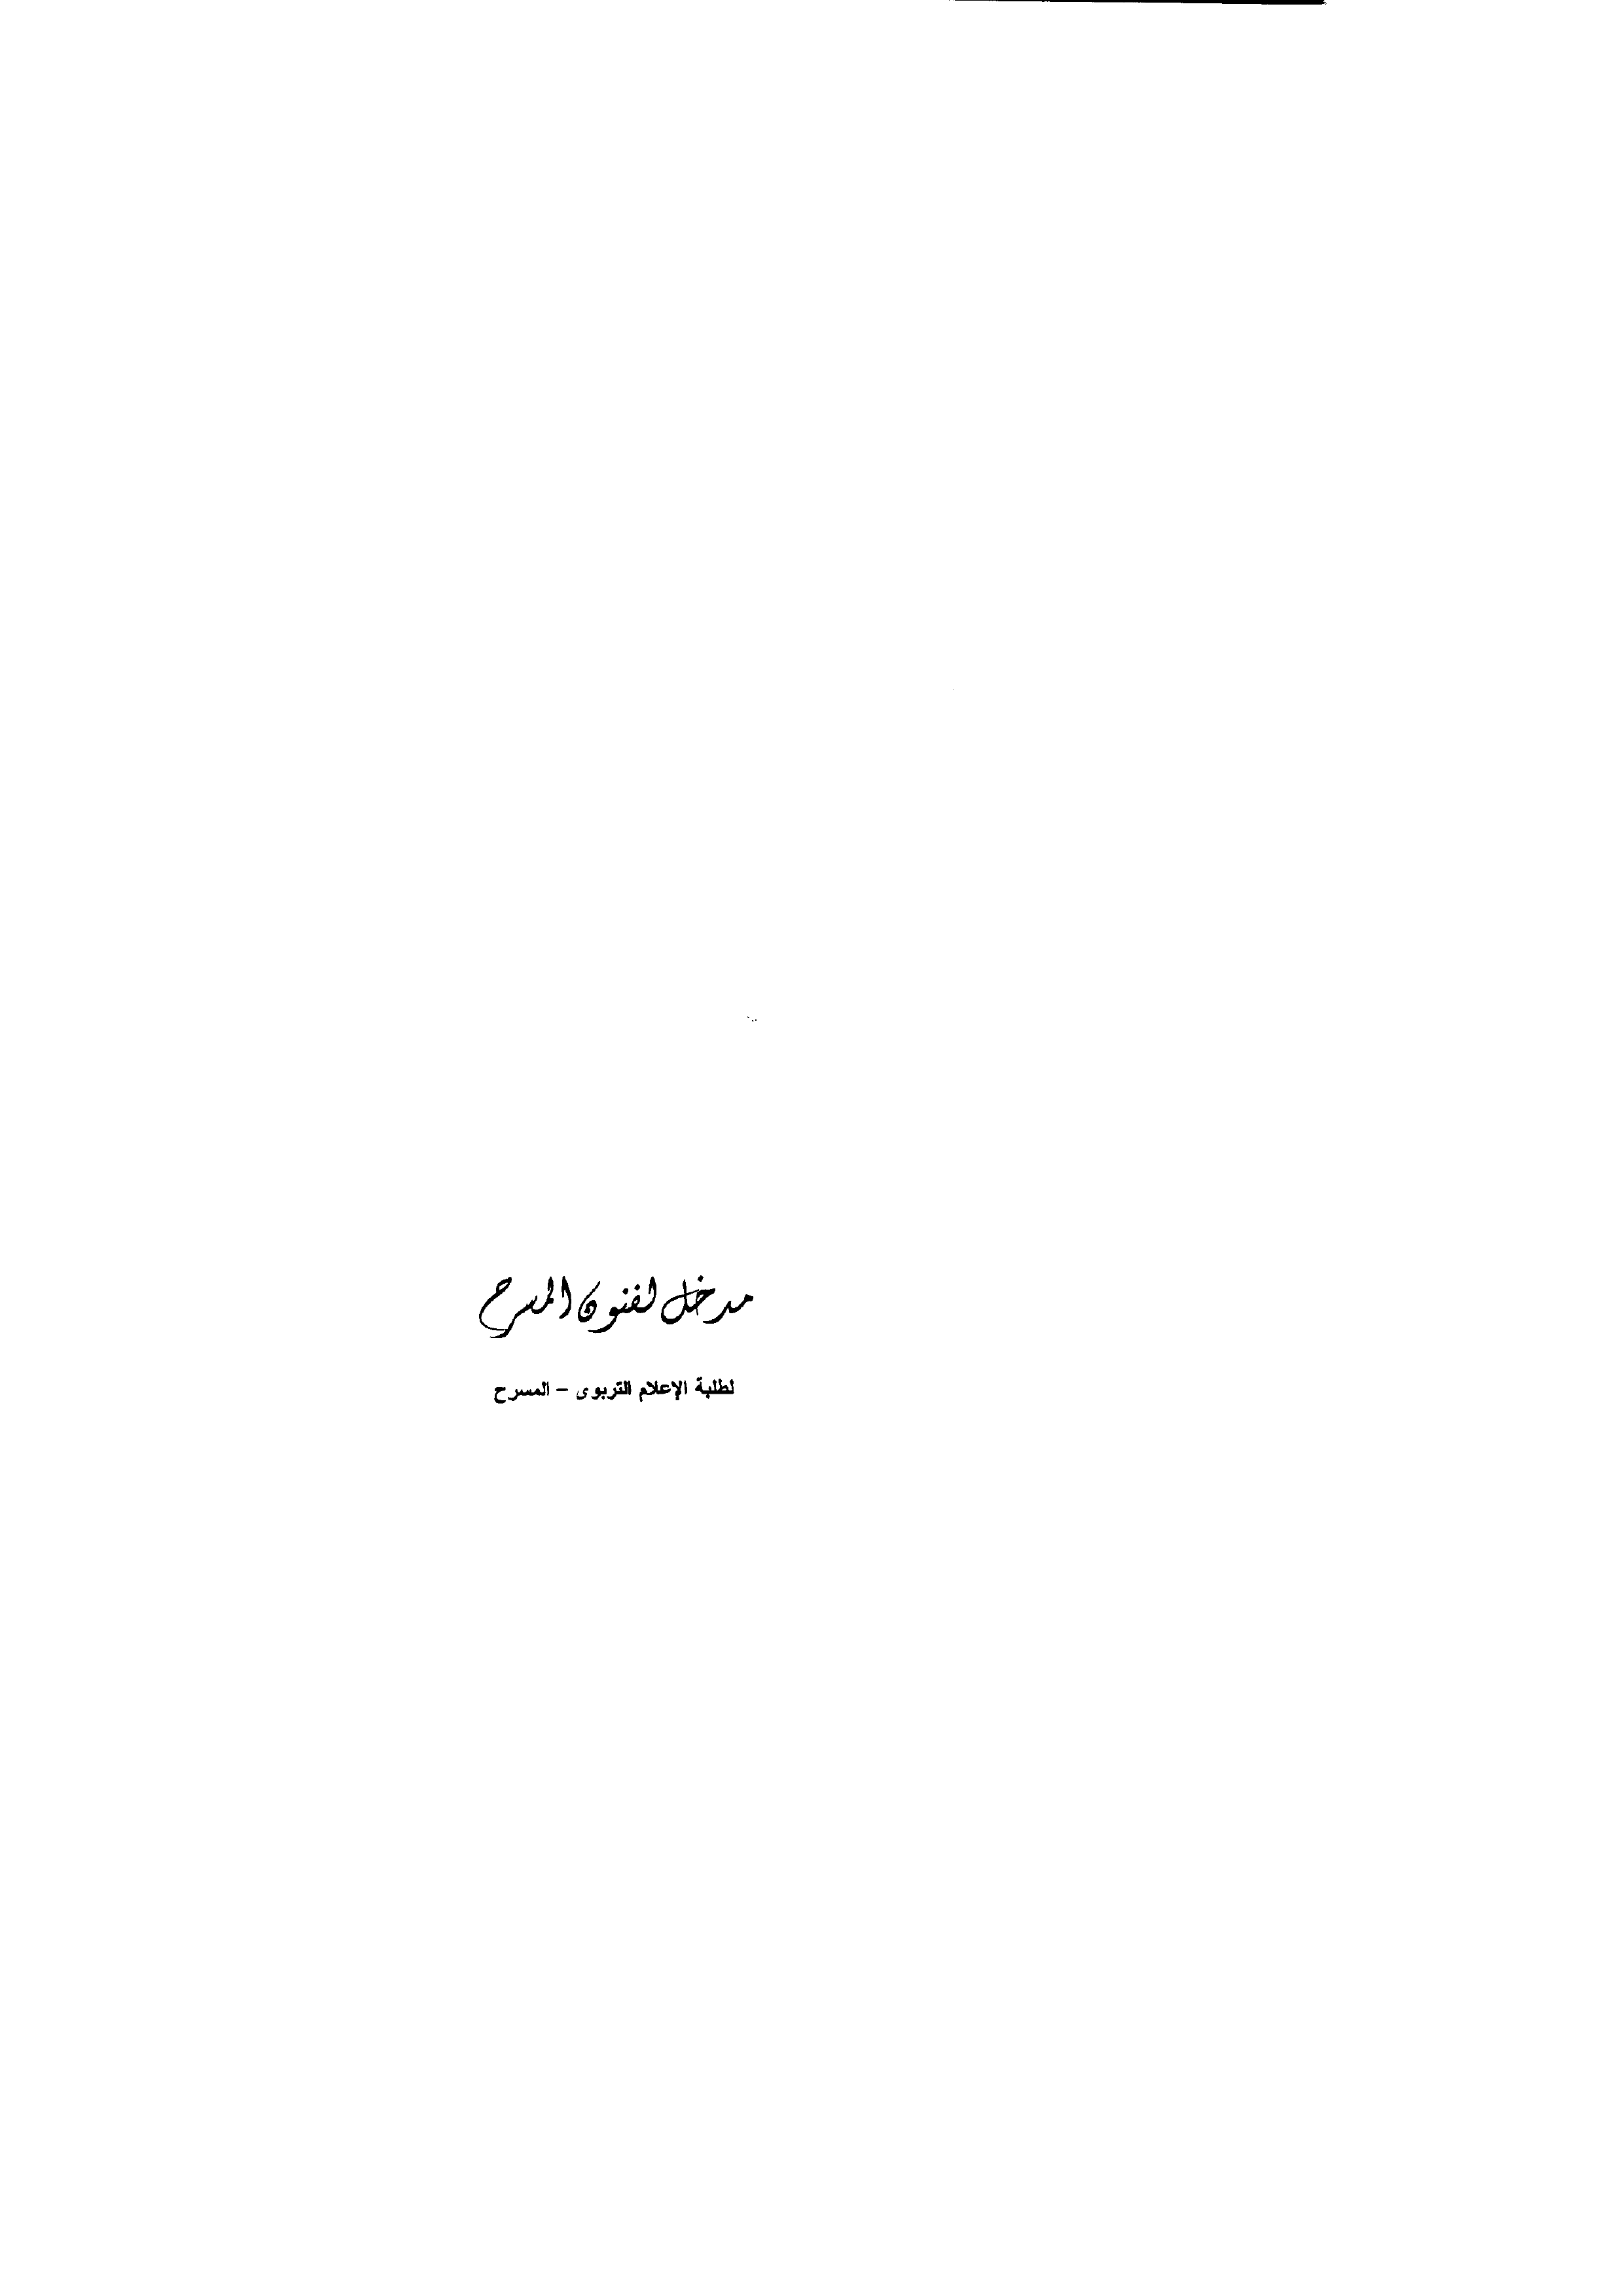 مدخل لفنون المسرح
لطلبة الإعلام التربوى – المسرح